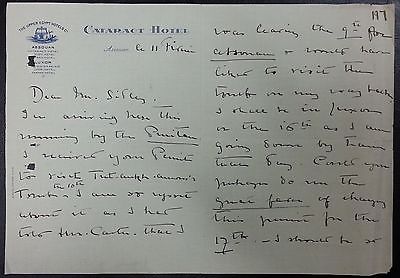 THE UPPER EGYPT HOTELS Cº
ASSOUAN
LUXOR
CATARACT HOTEL
Assouan le 11
Dear Mr.
On arriving here this
morning by the
I received your Permit
to visit Tut.ankh.amon's
the 10th
Tomb. I am so
about it as I had
told Mr. Carter that I
197
was leaving the 9th for
Assouan & would have
liked to visit the
tomb on my way back
I shall be in Luxor
on the 16th as I am
going down by train
that day. Could you
perhaps do me the
great favor of changing
this permit for the
17th. I should be so